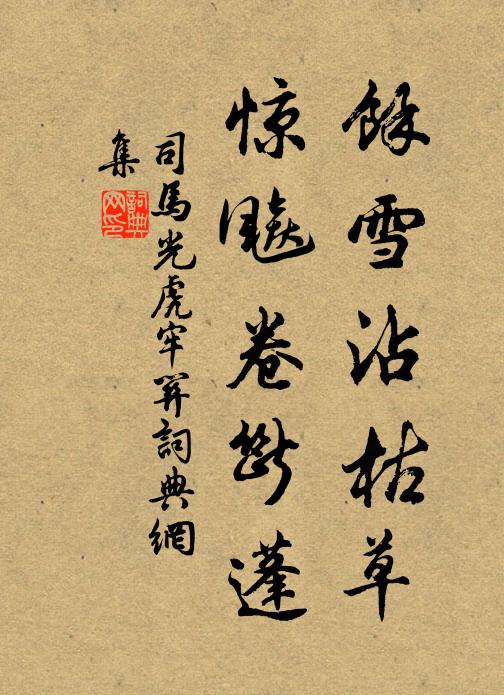 餘雪沾枯草
惊飇卷斷蓬
司馬光虎牢關詞典網
集
詞典網印